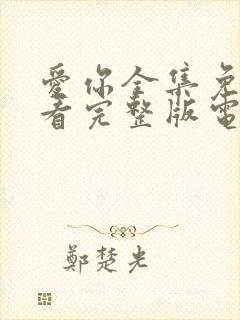 愛你全集免
看完整版電
鄭楚光